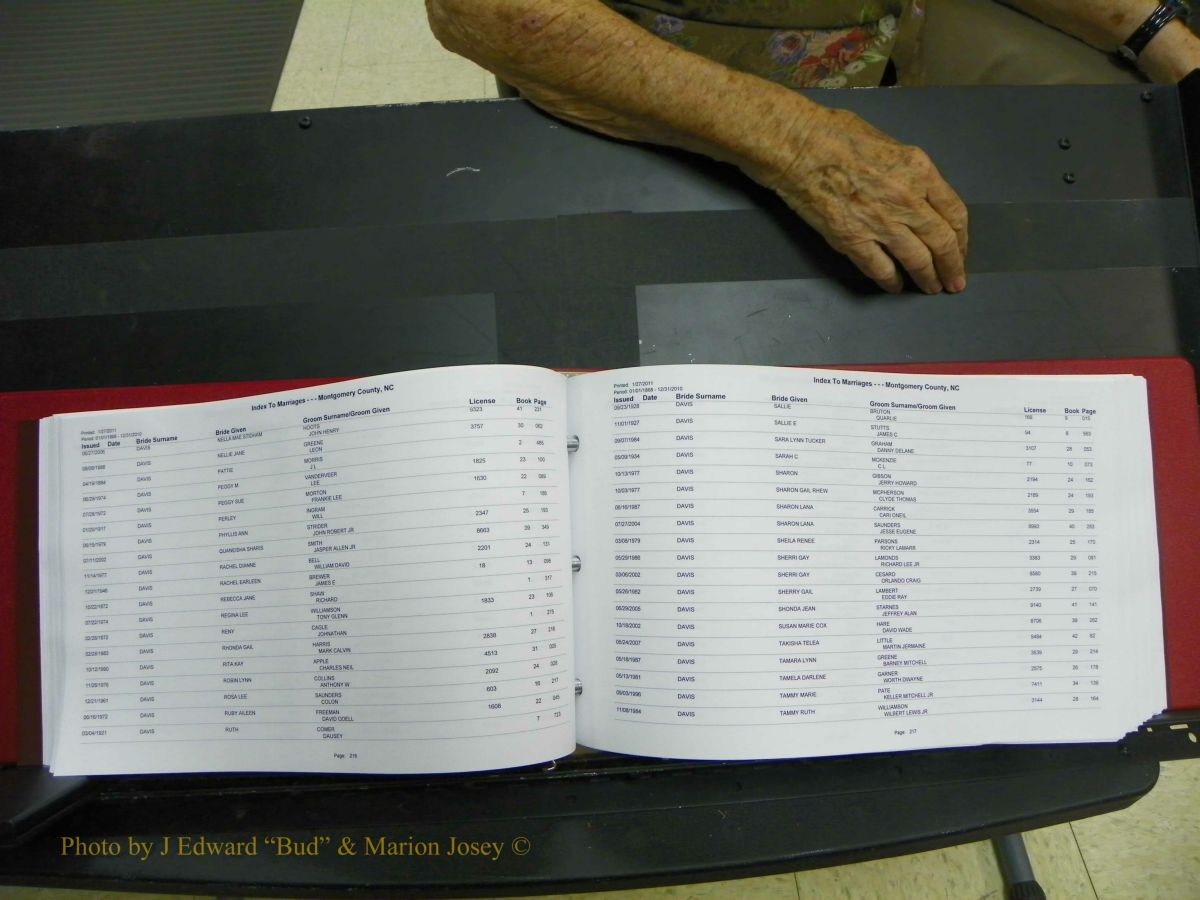 Index To Marriages - - - Montgomery County, NC
Printed 1/27/2011
Period: 01/01/1868 - 12/31/2010
Issued Date Bride Surname Bride Given Groom Surname/Groom Given License Book Page
06/27/2006 DAVIS NELLA MAE STIDHAM HOOTS 9323 41 231
JOHN HENRY
DAVIS NELLIE JANE GREENE 3757 30 062
LEON
DAVIS PATTIE MORRIS 2 485
J L
DAVIS PEGGY M VANDERVEER 1825 23 100
LEE
DAVIS PEGGY SUE MORTON 1630 22 089
FRANKIE LEE
DAVIS PERLEY INGRAM 7
WILL
DAVIS PHYLLIS ANN STRIDER 2347 25 193
JOHN ROBERT JR
DAVIS QUANEISHA SHARIS SMITH 8663 39 349
JASPER ALLEN JR
11/14/1977 DAVIS RACHEL DIANNE BELL 2201 24 131
WILLIAM DAVID
DAVIS RACHEL EARLEEN BREWER 18 13 098
JAMES E
DAVIS REBECCA JANE SHAW 1 317
RICHARD
DAVIS REGINA LEE WILLIAMSON 1833 23 108
TONY GLENN
DAVIS RENY CAGLE 1 275
JOHNATHAN
DAVIS RHONDA GAIL HARRIS 2838 27 218
MARK CALVIN
10/12/1990 DAVIS RITA KAY APPLE 4513 31 025
CHARLES NEIL
11/26/1976 DAVIS ROBIN LYNN COLLINS 2092 24 028
ANTHONY W
12/21/1961 DAVIS ROSA LEE SAUNDERS 603 16 217
COLON
06/16/1972 DAVIS RUBY AILEEN FREEMAN 1608 22 045
DAVID ODELL
03/04/1921 DAVIS RUTH COMER 7 723
DAUSEY
Page 216
Index To Marriages - - - Montgomery County, NC
Printed 1/27/2011
Period: 01/01/1868 - 12/31/2010
Issued Date Bride Surname Bride Given Groom Surname/Groom Given License Book Page
09/23/1928 DAVIS SALLIE BRUTON 9 015
QUARLIE
11/01/1927 DAVIS SALLIE E STUTTS 94 8 983
JAMES C
09/07/1984 DAVIS SARA LYNN TUCKER GRAHAM 3107 28 053
DANNY DELANE
05/09/1934 DAVIS SARAH C MCKENZIE 77 10 073
C L
10/13/1977 DAVIS SHARON GIBSON 2194 24 162
JERRY HOWARD
10/03/1977 DAVIS SHARON GAIL RHEW MCPHERSON 2189 24 193
CLYDE THOMAS
06/16/1987 DAVIS SHARON LANA CARRICK 3554 29 185
CARI ONEIL
07/27/2004 DAVIS SHARON LANA SAUNDERS 8993 40 283
JESSE EUGENE
03/08/1979 DAVIS SHEILA RENEE PARSONS 2314 25 170
RICKY LAMARR
05/29/1986 DAVIS SHERRI GAY LAMONDS 3383 29 081
RICHARD LEE JR
03/06/2002 DAVIS SHERRI GAY CESARO 8580 39 215
ORLANDO CRAIG
05/26/1982 DAVIS SHERRY GAIL LAMBERT 2739 27 070
EDDIE RAY
08/29/2005 DAVIS SHONDA JEAN STARNES 9140 41 141
JEFFREY ALAN
10/18/2002 DAVIS SUSAN MARIE COX HARE 8706 39 262
DAVID WADE
05/24/2007 DAVIS TAKISHA TELEA LITTLE 9494 42 82
MARTIN JERMAINE
05/18/1987 DAVIS TAMARA LYNN GREENE 3539 29 214
BARNEY MITCHELL
05/13/1981 DAVIS TAMELA DARLENE GARNER 2575 26 178
WORTH DWAYNE
09/03/1996 DAVIS TAMMY MARIE PATE 7411 34 138
KELLER MITCHELL JR
11/08/1984 DAVIS TAMMY RUTH WILLIAMSON 3144 28 164
WILBERT LEWIS JR
Page 217
Photo by J Edward “Bud” & Marion Josey ©